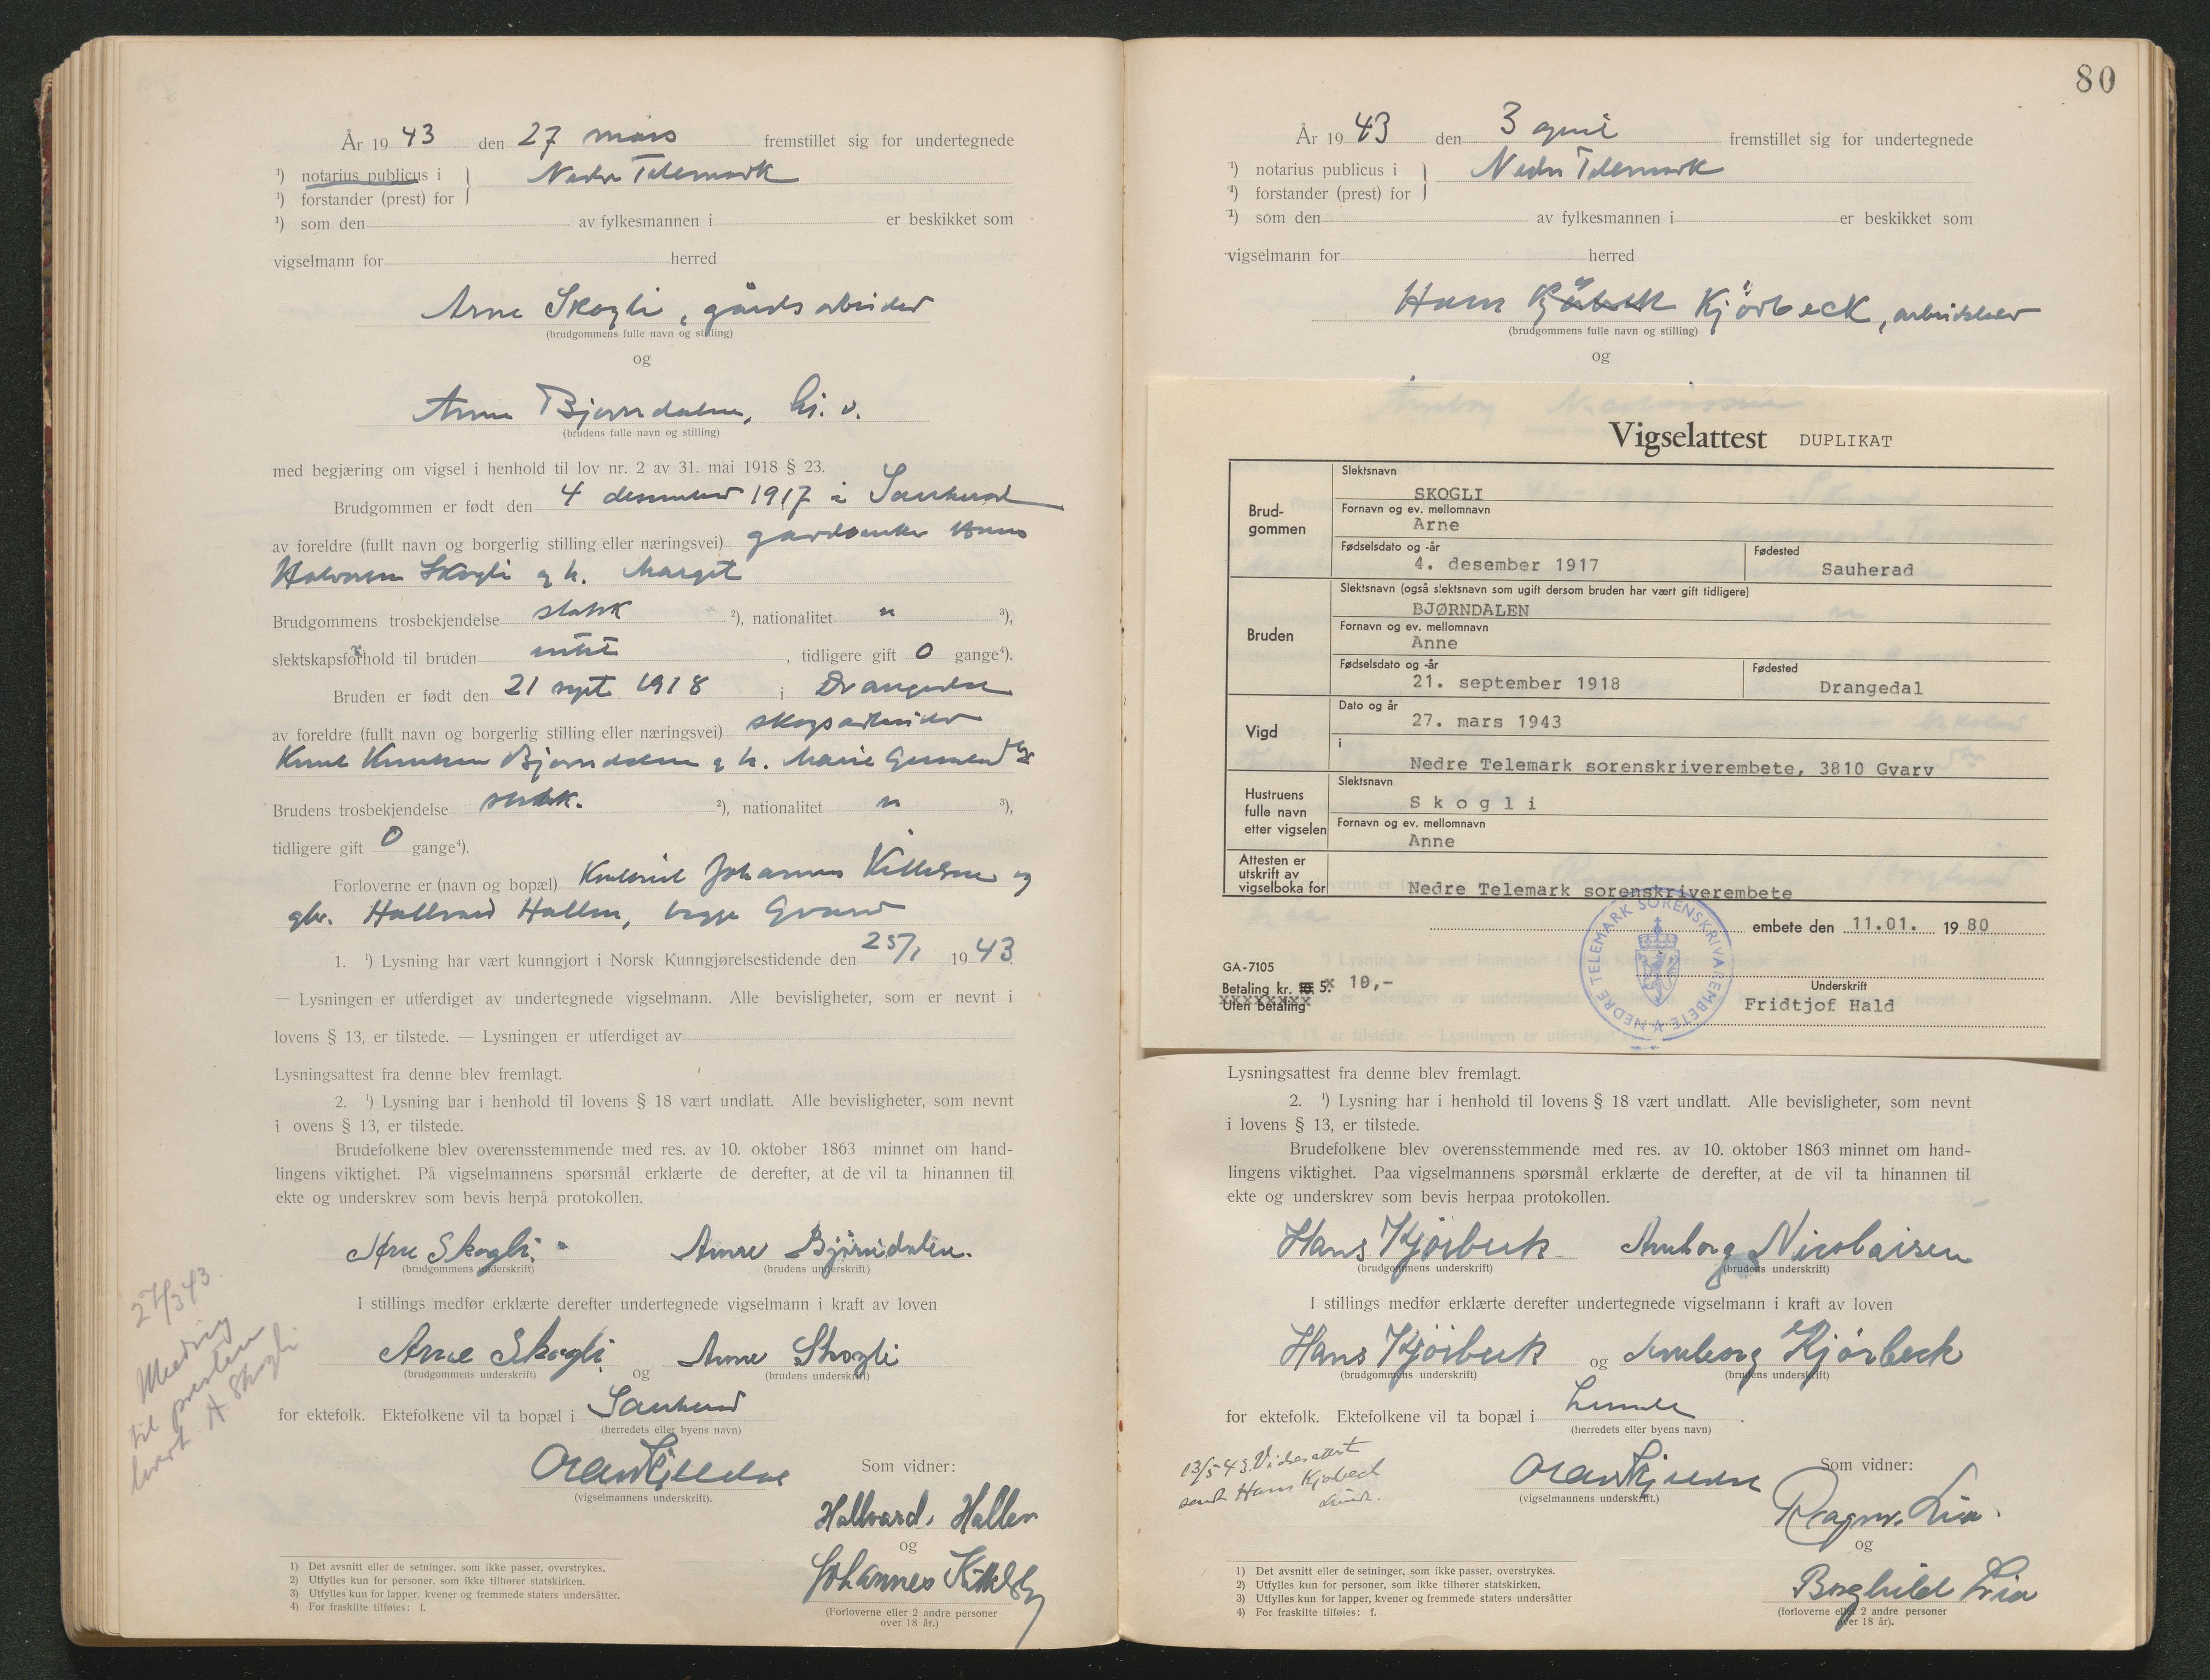 År 1943 den 27 mars fremstillet sig for undertegnede
¹) notarius publicus i Nedre Telemark
¹) forstander (prest) for
¹) som den av fylkesmannen i er beskikket som
vigselmann for herred
Arne Skogli, gårdsarbeider
(brudgommens fulle navn og stilling)
og
Anne Bjørndalen, hj. v.
(brudens fulle navn og stilling)
med begjæring om vigsel i henhold til lov nr. 2 av 31. mai 1918 § 23.
Brudgommen er født den 4 desember 1917 i Sauherad
av foreldre (fullt navn og borgerlig stilling eller næringsvei) gårdbruker Hans
Halvorsen Skogli og h. Margit
Brudgommens trosbekjendelse statsk ²), nationalitet n ³),
slektskapsforhold til bruden intet, tidligere gift 0 gange⁴).
Bruden er født den 21 sept 1918 i Drangedal
av foreldre (fullt navn og borgerlig stilling eller næringsvei) skogsarbeider
Knut Knutsen Bjørndalen og h. Marie
Brudens trosbekjendelse statsk. ²), nationalitet n ³),
tidligere gift 0 gange⁴).
Forloverne er (navn og bopæl) Johannes og
gbr. Hallvard Hallen, begge Gvarv
1. ¹) Lysning har vært kunngjort i Norsk Kunngjørelsestidende den 25/1 1943
— Lysningen er utferdiget av undertegnede vigselmann. Alle bevisligheter, som er nevnt i
lovens § 13, er tilstede. — Lysningen er utferdiget av
Lysningsattest fra denne blev fremlagt.
2. ¹) Lysning har i henhold til lovens § 18 vært undlatt. Alle bevisligheter, som nevnt
i ovens § 13, er tilstede.
Brudefolkene blev overensstemmende med res. av 10. oktober 1863 minnet om hand-
lingens viktighet. På vigselmannens spørsmål erklærte de derefter, at de vil ta hinannen til
ekte og underskrev som bevis herpå protokollen.
Arne Skogli. Anne Bjørndalen.
(brudgommens underskrift) (brudens underskrift)
I stillings medfør erklærte derefter undertegnede vigselmann i kraft av loven
Arne Skogli og Anne Skogli
(brudgommens underskrift) (brudens underskrift)
for ektefolk. Ektefolkene vil ta bopæl i Sauherad
(herredets eller byens navn)
(vigselmannens underskrift).
Som vidner:
Hallvard Hallen
og
Johannes Kittelsby
(Forloverne eller 2 andre personer
over 18 år.)
27/3 43
Medning
til presten
levert A Skogli
1) Det avsnitt eller de setninger, som ikke passer, overstrykes.
2) Utfylles kun for personer, som ikke tilhører statskirken.
3) Utfylles kun for lapper, kvener og fremmede staters undersåtter.
4) For fraskilte tilføies: f.
80
År 1943 den 3 april fremstillet sig for undertegnede
¹) notarius publicus i Nedre Telemark
¹) forstander (prest) for
¹) som den av fylkesmannen i er beskikket som
vigselmann for herred
Hans Kjørbeck, arbeider
(brudgommens fulle navn og stilling)
og
Vigselattest DUPLIKAT
Brud-
gommen
Slektsnavn
SKOGLI
Fornavn og ev. mellomnavn
Arne
Fødselsdato og -år
4. desember 1917
Fødested
Sauherad
Bruden
Slektsnavn (også slektsnavn som ugift dersom bruden har vært gift tidligere)
BJØRNDALEN
Fornavn og ev. mellomnavn
Anne
Fødselsdato og -år
21. september 1918
Fødested
Drangedal
Vigd
Dato og år
27. mars 1943
i
Nedre Telemark sorenskriverembete, 3810 Gvarv
Hustruens
fulle navn
etter vigselen
Slektsnavn
S k o g l i
Fornavn og ev. mellomnavn
Anne
Attesten er
utskrift av
vigselboka for
Nedre Telemark sorenskriverembete
embete den 11.01. 1980
NEDRE TELEMARK SORENSKRIVAREMBETE
GA-7105
Betaling kr. 10,-
Uten betaling
Underskrift
Fridtjof Hald
Lysningsattest fra denne blev fremlagt.
2. ¹) Lysning har i henhold til lovens § 18 vært undlatt. Alle bevisligheter, som nevnt
i lovens § 13, er tilstede.
Brudefolkene blev overensstemmende med res. av 10. oktober 1863 minnet om hand-
lingens viktighet. Paa vigselmannens spørsmål erklærte de derefter, at de vil ta hinannen til
ekte og underskrev som bevis herpaa protokollen.
Hans Kjørbeck Annborg Nicolaisen
(brudgommens underskrift) (brudens underskrift)
I stillings medfør erklærte derefter undertegnede vigselmann i kraft av loven
Hans Kjørbeck og Annborg Kjørbeck
(brudgommens underskrift) (brudens underskrift)
for ektefolk. Ektefolkene vil ta bopæl i Lunde.
(herredets eller byens navn)
13/5 43. Vielsesattest
sendt Hans Kjørbeck
Lunde.
(vigselmannens underskrift.)
Som vidner:
Ragnv. Lia.
og
Borghild Lia
(forloverne eller 2 andre personer
over 18 år).
1) Det avsnitt eller de setninger, som ikke passer, overstrykes.
2) Utfylles kun for personer, som ikke tilhører statskirken.
3) Utfylles kun for lapper, kvener og fremmede staters undersåtter
4) For fraskilte tilføies: f.